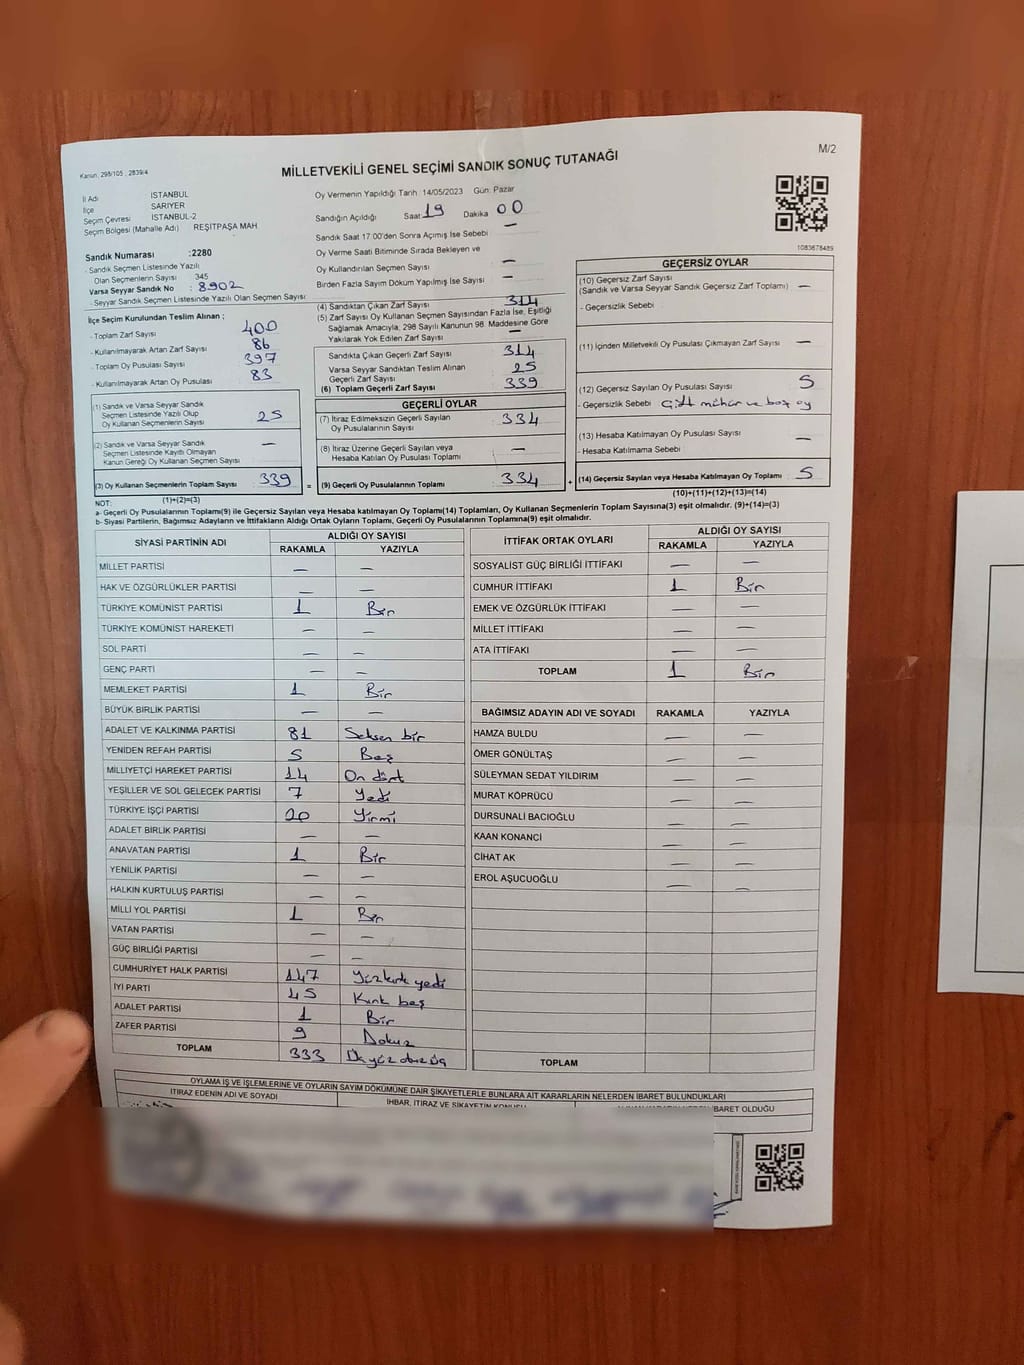 M/2
Kanun, 298/105 , 2839/4
MİLLETVEKİLİ GENEL SEÇİMİ SANDIK SONUÇ TUTANAĞI
İl Adı İSTANBUL
İlçe SARIYER
Seçim Çevresi İSTANBUL-2
Seçim Bölgesi (Mahalle Adı) REŞİTPAŞA MAH
Oy Vermenin Yapıldığı Tarih :14/05/2023 Gün: Pazar
Sandığın Açıldığı Saat 19 Dakika 00
Sandık Saat 17:00'den Sonra Açımış İse Sebebi —
Oy Verme Saati Bitiminde Sırada Bekleyen ve
Oy Kullandırılan Seçmen Sayısı —
Birden Fazla Sayım Dökum Yapılmış İse Sayısı —
1083678489
Sandık Numarası :2280
- Sandık Seçmen Listesinde Yazılı
Olan Seçmenlerin Sayısı 345
Varsa Seyyar Sandık No : 8902
- Seyyar Sandık Seçmen Listesinde Yazılı Olan Seçmen Sayısı
İlçe Seçim Kurulundan Teslim Alınan ;
- Toplam Zarf Sayısı 400
- Kullanılmayarak Artan Zarf Sayısı 86
- Toplam Oy Pusulası Sayısı 397
- Kullanılmayarak Artan Oy Pusulası 83
(1) Sandık ve Varsa Seyyar Sandık
Seçmen Listesinde Yazılı Olup
Oy Kullanan Seçmenlerin Sayısı 25
(2) Sandık ve Varsa Seyyar Sandık
Seçmen Listesinde Kayıtlı Olmayan
Kanun Gereği Oy Kullanan Seçmen Sayısı —
(3) Oy Kullanan Seçmenlerin Toplam Sayısı : 339 =
(1)+(2)=(3)
(4) Sandıktan Çıkan Zarf Sayısı 314
(5) Zarf Sayısı Oy Kullanan Seçmen Sayısından Fazla İse, Eşitliği
Sağlamak Amacıyla, 298 Sayılı Kanunun 98. Maddesine Göre
Yakılarak Yok Edilen Zarf Sayısı —
Sandıkta Çıkan Geçerli Zarf Sayısı 314
Varsa Seyyar Sandıktan Teslim Alınan
Geçerli Zarf Sayısı 25
(6) Toplam Geçerli Zarf Sayısı 339
GEÇERLİ OYLAR
(7) İtiraz Edilmeksizin Geçerli Sayılan
Oy Pusulalarının Sayısı : 334
(8) İtiraz Üzerine Geçerli Sayılan veya
Hesaba Katılan Oy Pusulası Toplamı —
(9) Geçerli Oy Pusulalarının Toplamı : 334 +
GEÇERSİZ OYLAR
(10) Geçersiz Zarf Sayısı
(Sandık ve Varsa Seyyar Sandık Geçersiz Zarf Toplamı) —
- Geçersizlik Sebebi :
(11) İçinden Milletvekili Oy Pusulası Çıkmayan Zarf Sayısı —
(12) Geçersiz Sayılan Oy Pusulası Sayısı 5
- Geçersizlik Sebebi Çift mühür ve boş oy
(13) Hesaba Katılmayan Oy Pusulası Sayısı —
- Hesaba Katılmama Sebebi
(14) Geçersiz Sayılan veya Hesaba Katılmayan Oy Toplamı : 5
(10)+(11)+(12)+(13)=(14)
NOT:
a- Geçerli Oy Pusulalarının Toplamı(9) ile Geçersiz Sayılan veya Hesaba katılmayan Oy Toplamı(14) Toplamları, Oy Kullanan Seçmenlerin Toplam Sayısına(3) eşit olmalıdır. (9)+(14)=(3)
b- Siyasi Partilerin, Bağımsız Adayların ve İttifakların Aldığı Ortak Oyların Toplamı, Geçerli Oy Pusulalarının Toplamına(9) eşit olmalıdır.
SİYASİ PARTİNİN ADI ALDIĞI OY SAYISI
RAKAMLA YAZIYLA
MİLLET PARTİSİ — —
HAK VE ÖZGÜRLÜKLER PARTİSİ — —
TÜRKİYE KOMÜNİST PARTİSİ 1 Bir
TÜRKİYE KOMÜNİST HAREKETİ — —
SOL PARTİ — —
GENÇ PARTİ — —
MEMLEKET PARTİSİ 1 Bir
BÜYÜK BİRLİK PARTİSİ — —
ADALET VE KALKINMA PARTİSİ 81 Seksen bir
YENİDEN REFAH PARTİSİ 5 Beş
MİLLİYETÇİ HAREKET PARTİSİ 14 On dört
YEŞİLLER VE SOL GELECEK PARTİSİ 7 Yedi
TÜRKİYE İŞÇİ PARTİSİ 20 Yirmi
ADALET BİRLİK PARTİSİ — —
ANAVATAN PARTİSİ 1 Bir
YENİLİK PARTİSİ — —
HALKIN KURTULUŞ PARTİSİ — —
MİLLİ YOL PARTİSİ 1 Bir
VATAN PARTİSİ — —
GÜÇ BİRLİĞİ PARTİSİ — —
CUMHURİYET HALK PARTİSİ 147 Yüzkırk yedi
İYİ PARTİ 45 Kırk beş
ADALET PARTİSİ 1 Bir
ZAFER PARTİSİ 9 Dokuz
TOPLAM 333 Üçyüz otuz üç
İTTİFAK ORTAK OYLARI ALDIĞI OY SAYISI
RAKAMLA YAZIYLA
SOSYALİST GÜÇ BİRLİĞİ İTTİFAKI — —
CUMHUR İTTİFAKI 1 Bir
EMEK VE ÖZGÜRLÜK İTTİFAKI — —
MİLLET İTTİFAKI — —
ATA İTTİFAKI — —
TOPLAM 1 Bir
BAĞIMSIZ ADAYIN ADI VE SOYADI RAKAMLA YAZIYLA
HAMZA BULDU — —
ÖMER GÖNÜLTAŞ — —
SÜLEYMAN SEDAT YILDIRIM — —
MURAT KÖPRÜCÜ — —
DURSUNALİ BACIOĞLU — —
KAAN KONANCİ — —
CİHAT AK — —
EROL AŞUCUOĞLU — —
TOPLAM
OYLAMA İŞ VE İŞLEMLERİNE VE OYLARIN SAYIM DÖKÜMÜNE DAİR ŞİKAYETLERLE BUNLARA AİT KARARLARIN NELERDEN İBARET BULUNDUKLARI
İTİRAZ EDENİN ADI VE SOYADI
İHBAR, İTİRAZ VE ŞİKAYETİN KONUSU
İBARET OLDUĞU